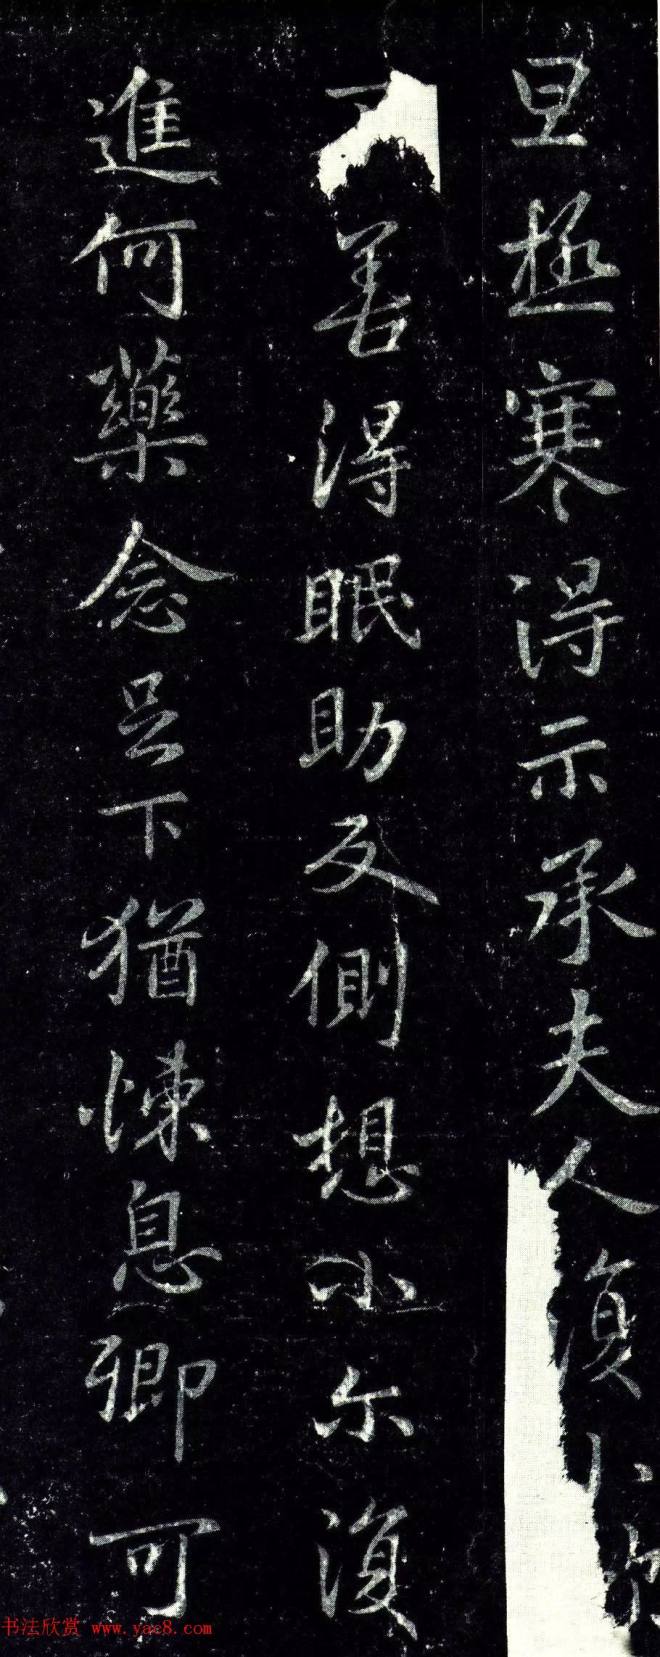 旦極寒得示承夫人復小
善得眠助反側想小尔復
進何藥念足下猶悚息卿可
书法欣赏 www.yac8.com